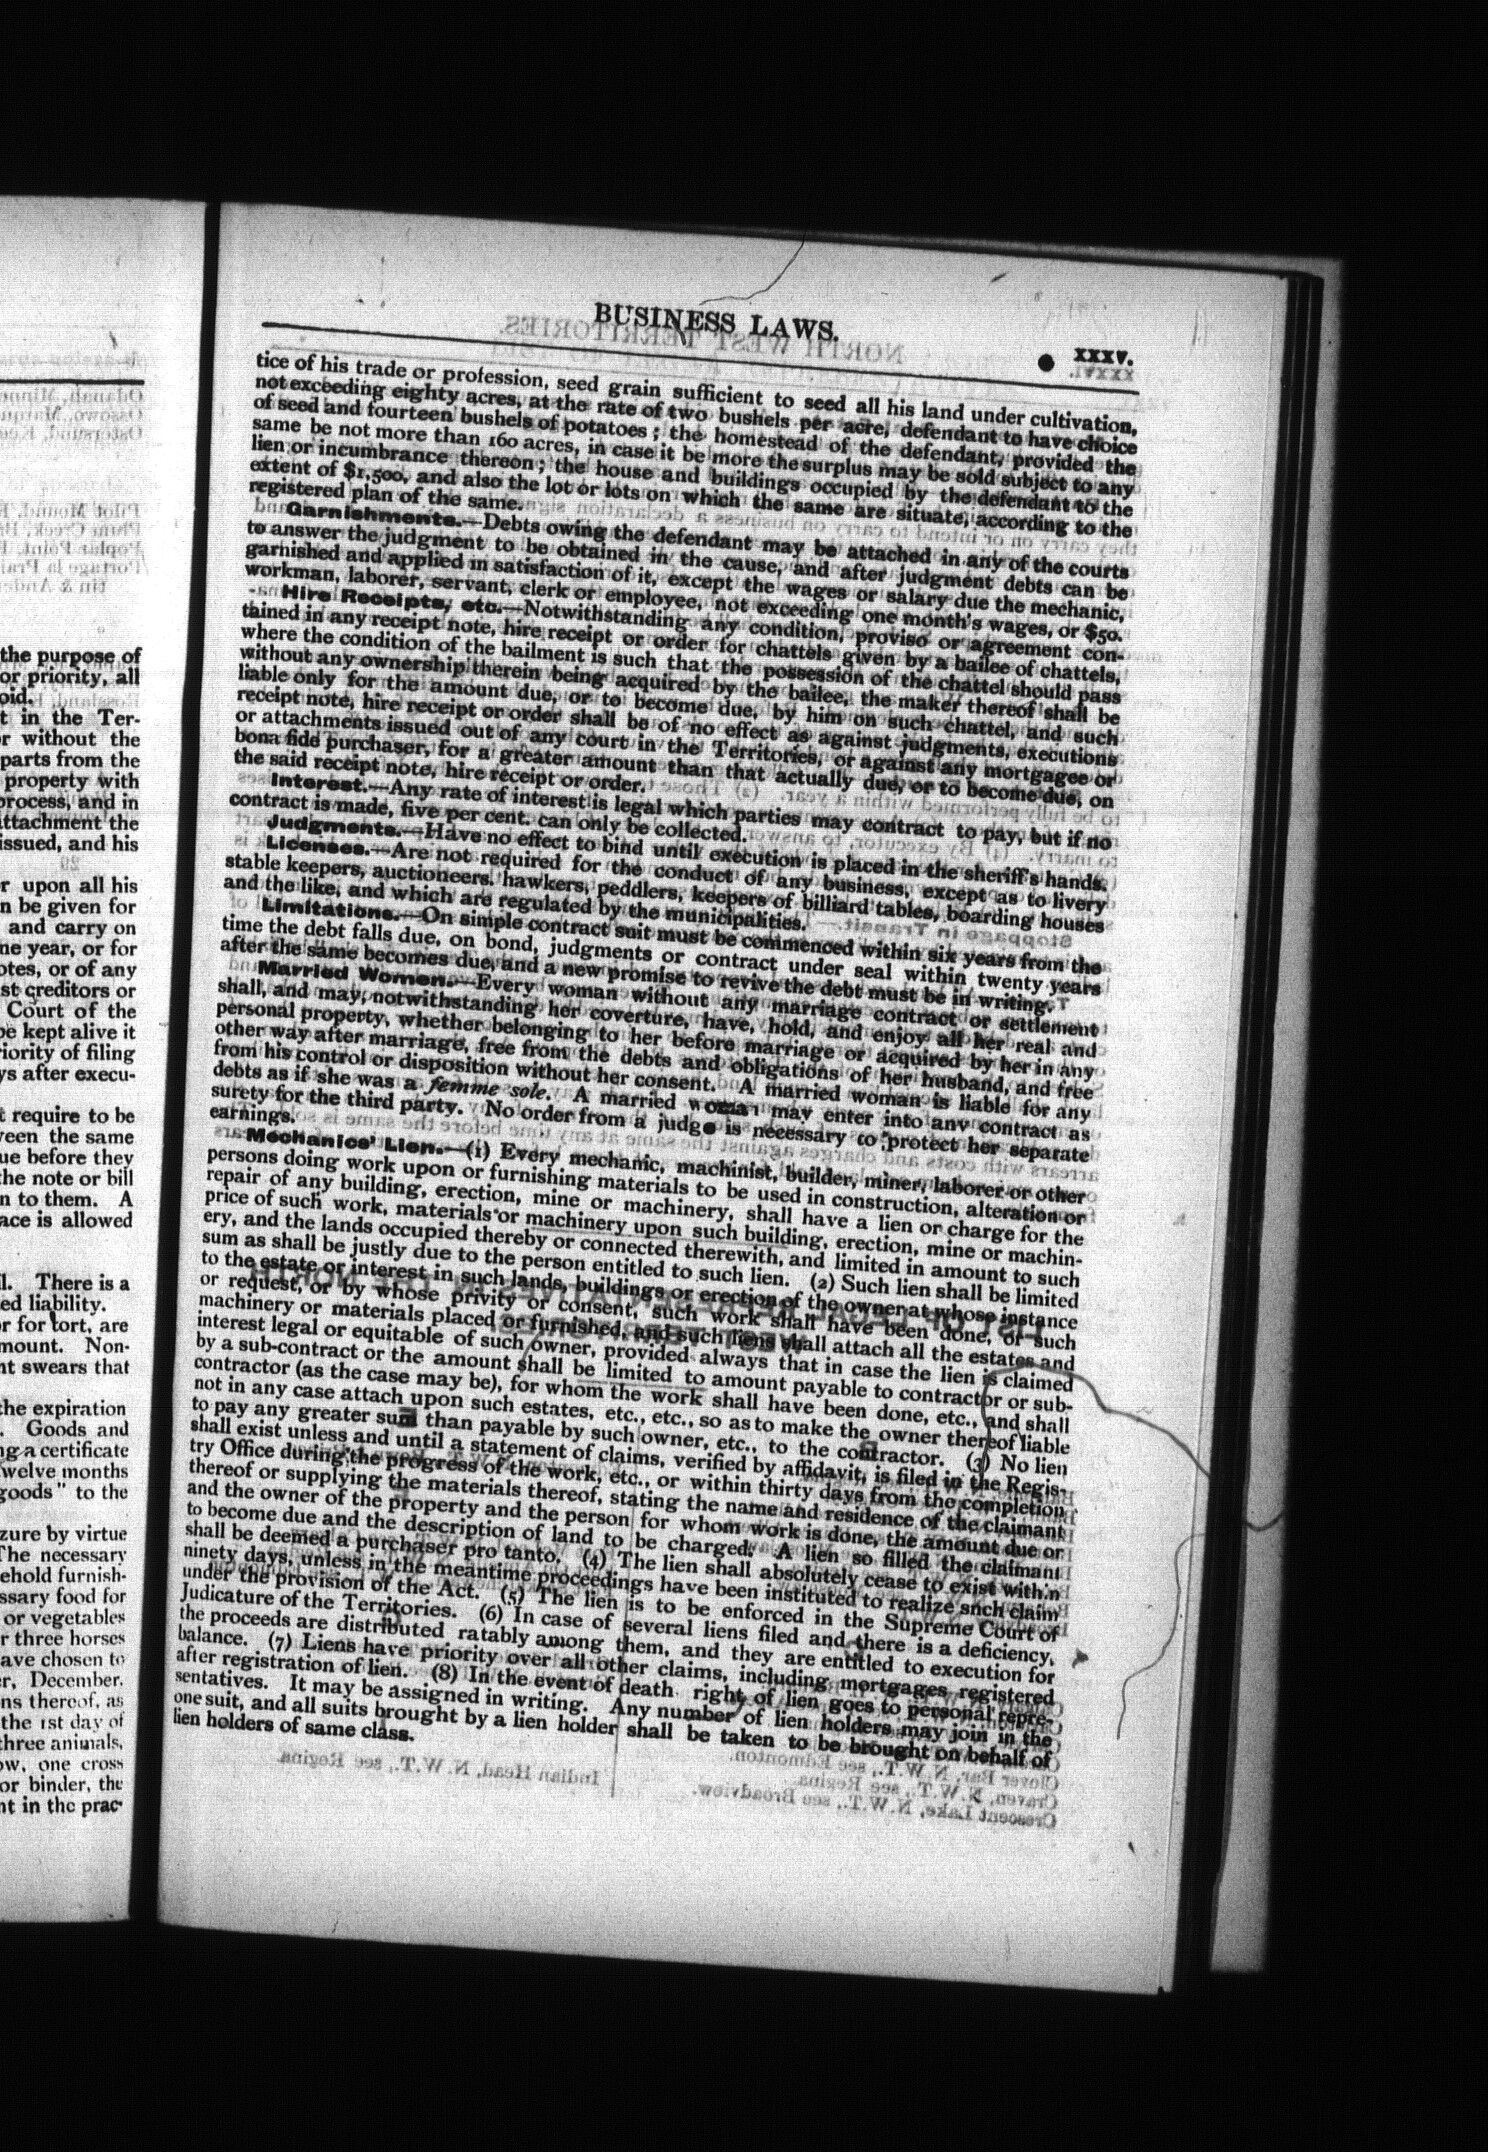 the purpose of
or priority, all
oid.
t in the Ter-
r without the
parts from the
property with
process, and in
ttachment the
issued, and his
r upon all his
n be given for
and carry on
ne year, or for
otes, or of any
st creditors or
Court of the
be kept alive it
riority of filing
ys after execu-
t require to be
veen the same
ue before they
the note or bill
n to them. A
ace is allowed
l. There is a
ed liability.
r for tort, are
mount. Non-
nt swears that
the expiration
. Goods and
ng a certificate
welve months
goods" to the
zure by virtue
The necessary
ehold furnish-
ssary food for
or vegetables
r three horses
ave chosen to
er, December,
ons thereof, as
the 1st day of
three animals,
ow, one cross
or binder, the
nt in the prac-
BUSINESS LAWS.
xxxv.
tice of his trade or profession, seed grain sufficient to seed all his land under cultivation,
not exceeding eighty acres, at the rate of two bushels per acre, defendant to have choice
of seed and fourteen bushels of potatoes; the homestead of the defendant, provided the
same be not more than 160 acres, in case it be more the surplus may be sold subject to any
lien or incumbrance thereon; the house and buildings occupied by the defendant to the
extent of $1,500, and also the lot or lots on which the same are situate, according to the
registered plan of the same.
Garnishments.—Debts owing the defendant may be attached in any of the courts
to answer the judgment to be obtained in the cause, and after judgment debts can be
garnished and applied in satisfaction of it, except the wages or salary due the mechanic,
workman, laborer, servant, clerk or employee, not exceeding one month's wages, or $50.
Hire Receipts, etc.—Notwithstanding any condition, proviso or agreement con-
tained in any receipt note, hire receipt or order for chattels given by a bailee of chattels,
where the condition of the bailment is such that the possession of the chattel should pass
without any ownership therein being acquired by the bailee, the maker thereof shall be
liable only for the amount due, or to become due, by him on such chattel, and such
receipt note, hire receipt or order shall be of no effect as against judgments, executions
or attachments issued out of any court in the Territories, or against any mortgagee or
bona fide purchaser, for a greater amount than that actually due, or to become due, on
the said receipt note, hire receipt or order.
Interest.—Any rate of interest is legal which parties may contract to pay, but if no
contract is made, five per cent. can only be collected.
Judgments.—Have no effect to bind until execution is placed in the sheriff's hands.
Licenses.—Are not required for the conduct of any business, except as to livery
stable keepers, auctioneers, hawkers, peddlers, keepers of billiard tables, boarding houses
and the like, and which are regulated by the municipalities.
Limitations.—On simple contract suit must be commenced within six years from the
time the debt falls due, on bond, judgments or contract under seal within twenty years
after the same becomes due, and a new promise to revive the debt must be in writing.
Married Women.—Every woman without any marriage contract or settlement
shall, and may, notwithstanding her coverture, have, hold, and enjoy all her real and
personal property, whether belonging to her before marriage or acquired by her in any
other way after marriage, free from the debts and obligations of her husband, and free
from his control or disposition without her consent. A married woman is liable for any
debts as if she was a femme sole. A married woman may enter into any contract as
surety for the third party. No order from a judge is necessary to protect her separate
earnings.
Mechanics' Lien.—(1) Every mechanic, machinist, builder, miner, laborer or other
persons doing work upon or furnishing materials to be used in construction, alteration or
repair of any building, erection, mine or machinery, shall have a lien or charge for the
price of such work, materials or machinery upon such building, erection, mine or machin-
ery, and the lands occupied thereby or connected therewith, and limited in amount to such
sum as shall be justly due to the person entitled to such lien. (2) Such lien shall be limited
to the estate or interest in such lands, buildings or erection of the owner at whose instance
or request, or by whose privity or consent, such work shall have been done, or such
machinery or materials placed or furnished, and such liens shall attach all the estates and
interest legal or equitable of such owner, provided always that in case the lien is claimed
by a sub-contract or the amount shall be limited to amount payable to contractor or sub-
contractor (as the case may be), for whom the work shall have been done, etc., and shall
not in any case attach upon such estates, etc., etc., so as to make the owner thereof liable
to pay any greater sum than payable by such owner, etc., to the contractor. (3) No lien
shall exist unless and until a statement of claims, verified by affidavit, is filed in the Regis-
try Office during the progress of the work, etc., or within thirty days from the completion
thereof or supplying the materials thereof, stating the name and residence of the claimant
and the owner of the property and the person for whom work is done, the amount due or
to become due and the description of land to be charged. A lien so filled the claimant
shall be deemed a purchaser pro tanto. (4) The lien shall absolutely cease to exist within
ninety days, unless in the meantime proceedings have been instituted to realize snch claim
under the provision of the Act. (5) The lien is to be enforced in the Supreme Court of
Judicature of the Territories. (6) In case of several liens filed and there is a deficiency,
the proceeds are distributed ratably among them, and they are entitled to execution for
balance. (7) Liens have priority over all other claims, including mortgages registered
after registration of lien. (8) In the event of death right of lien goes to personal repre-
sentatives. It may be assigned in writing. Any number of lien holders may join in the
one suit, and all suits brought by a lien holder shall be taken to be brought on behalf of
lien holders of same class.